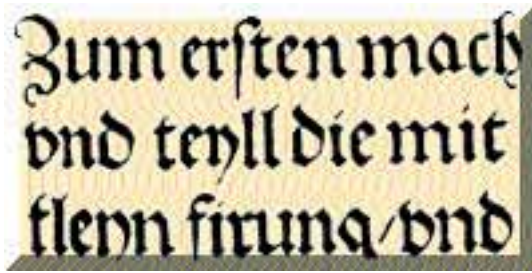 Zum erſten mach
vnd teyll die mit
kleyn firung/vnd